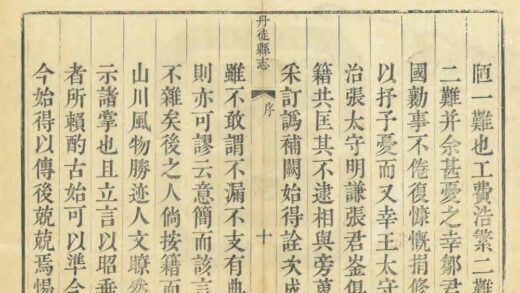 陋一難也工費浩繁二難
二難并余甚憂之幸鄒君
國勷事不倦復慷慨捐修
以抒予憂而又幸王太守
治張太守明謙張君崟俱
籍共匡其不逮相與旁萬
采訂譌補闕始得詮次成
丹徒縣志
序
十
雖不敢謂不漏不支有典
則亦可謬云意簡而該言
不雜矣後之人倘按籍而
山川風物勝迹人文瞭然
示諸掌也且立言以昭垂
者所賴酌古始可以準今
今始得以傳後兢兢焉惕